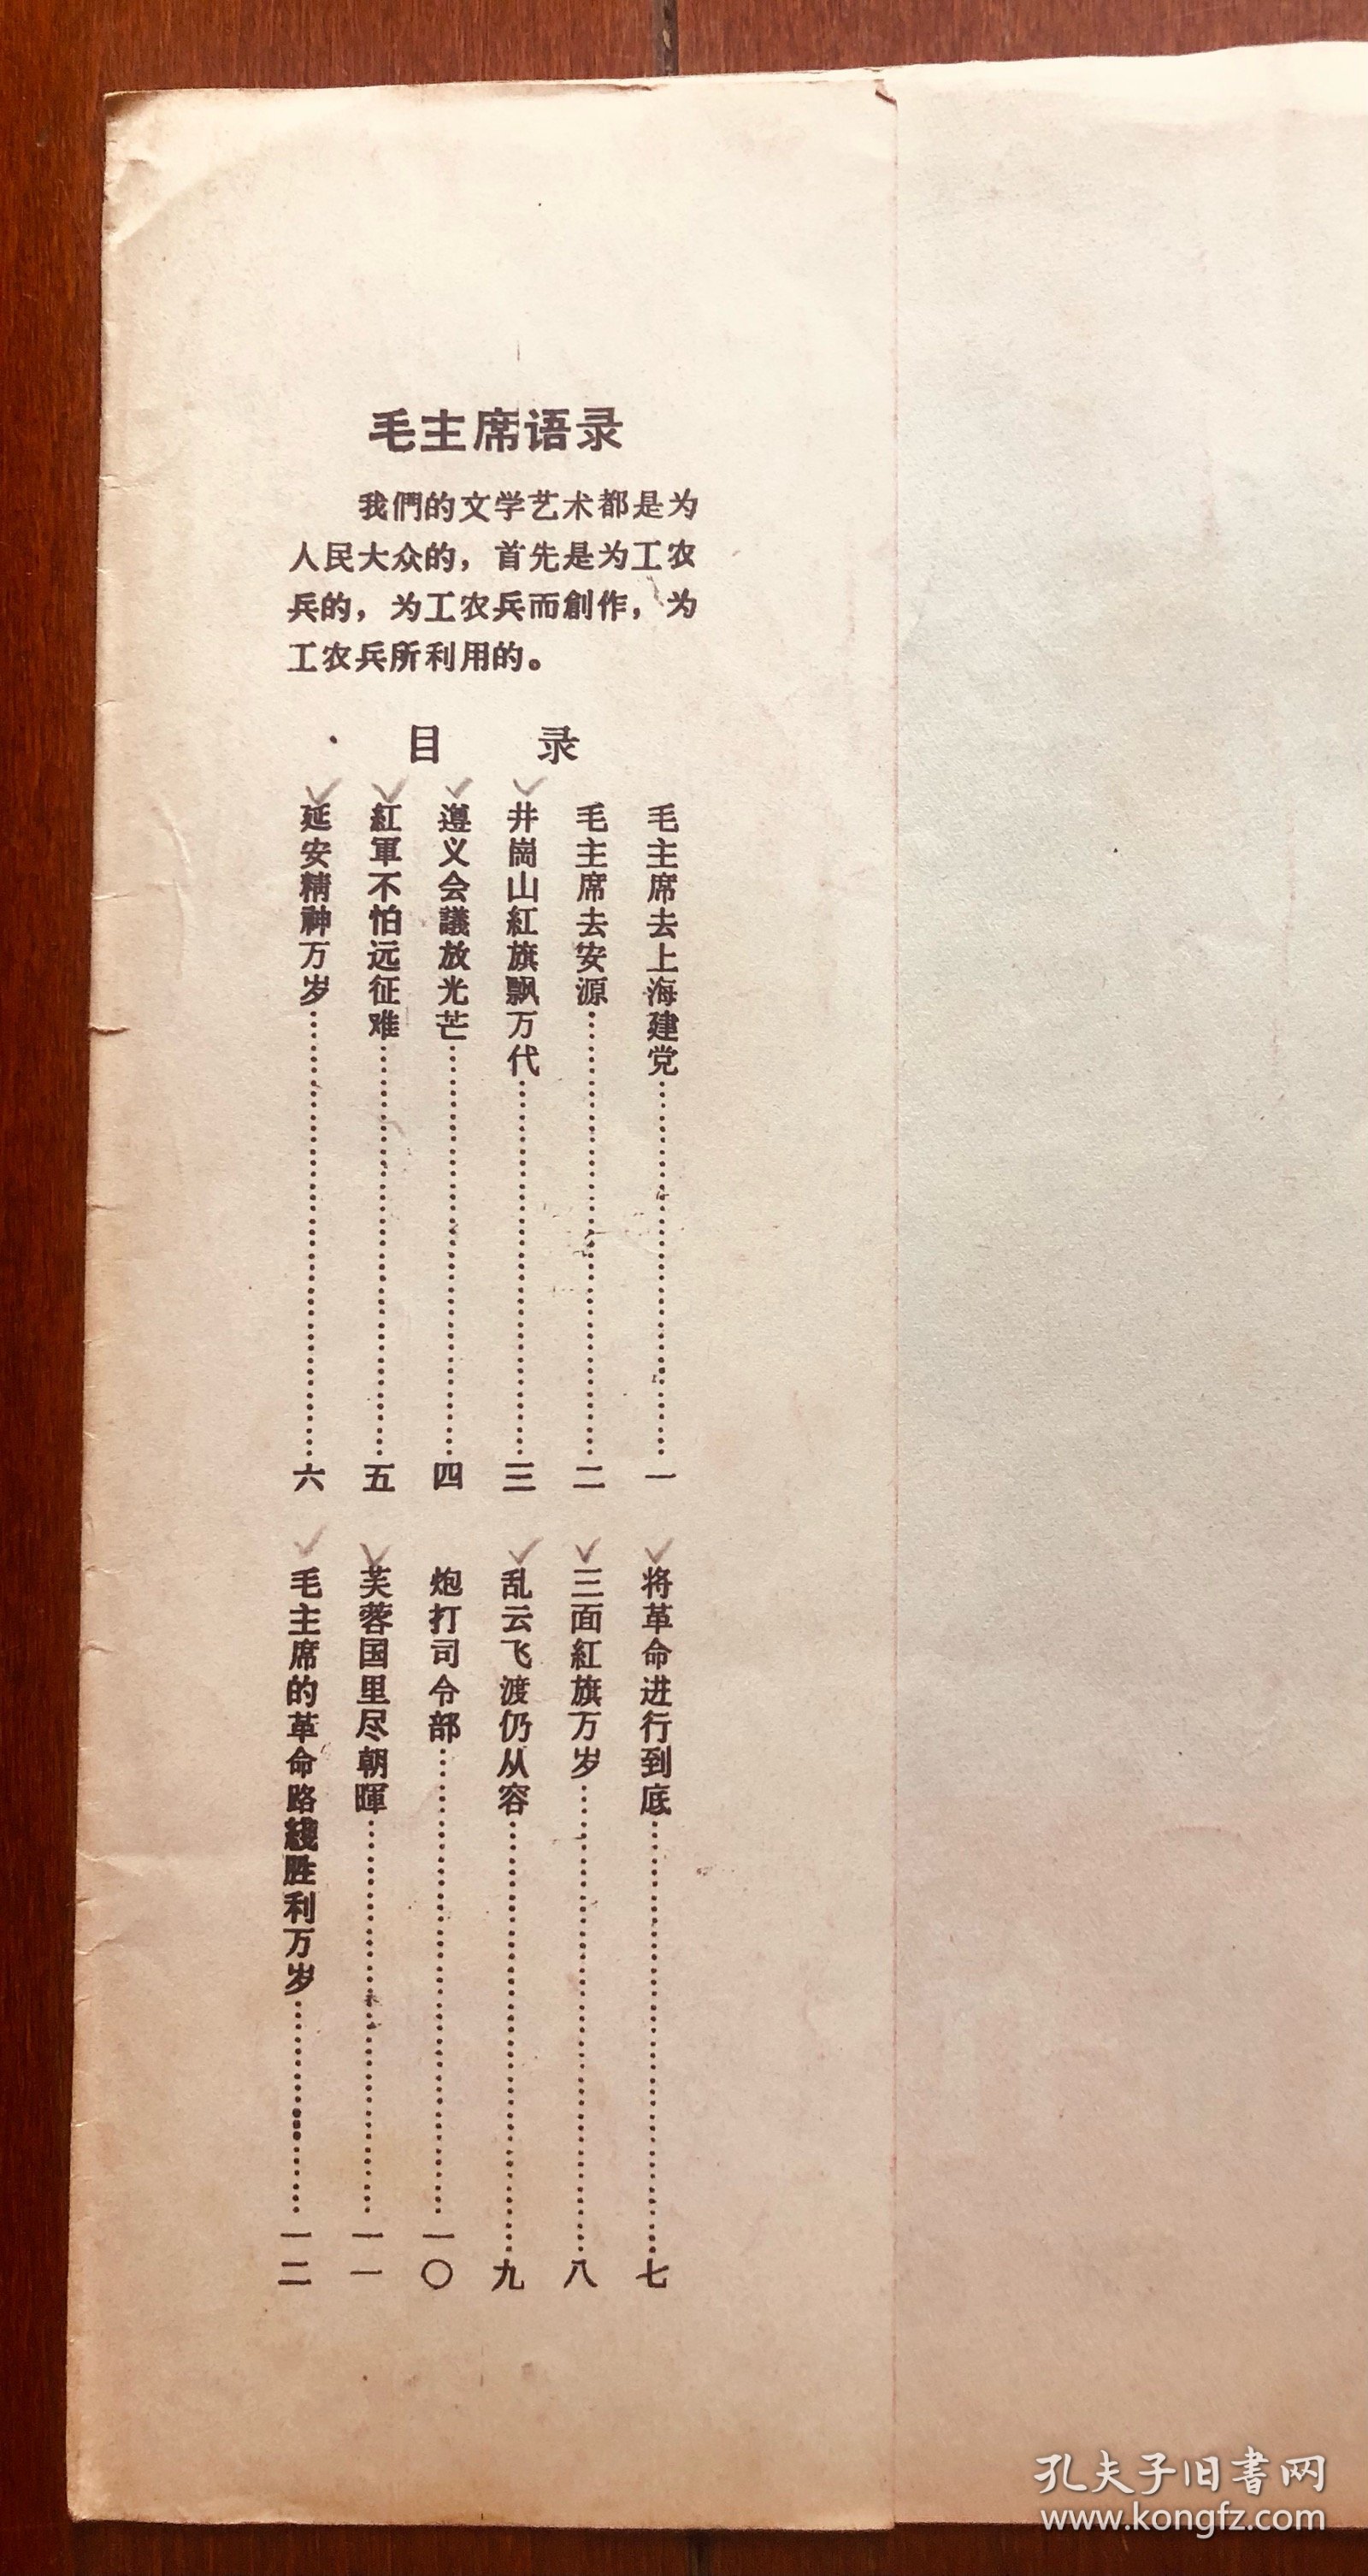 毛主席语录
我們的文学艺术都是为
人民大众的，首先是为工农
兵的，为工农兵而創作，为
工农兵所利用的。
目 录
毛主席去上海建党……一
毛主席去安源……二
井崗山紅旗飘万代……三
遵义会議放光芒……四
紅軍不怕远征难……五
延安精神万岁……六
将革命进行到底……七
三面紅旗万岁……八
乱云飞渡仍从容……九
炮打司令部……一〇
芙蓉国里尽朝暉……一一
毛主席的革命路綫胜利万岁……一二
孔夫子旧書网
www.kongfz.com